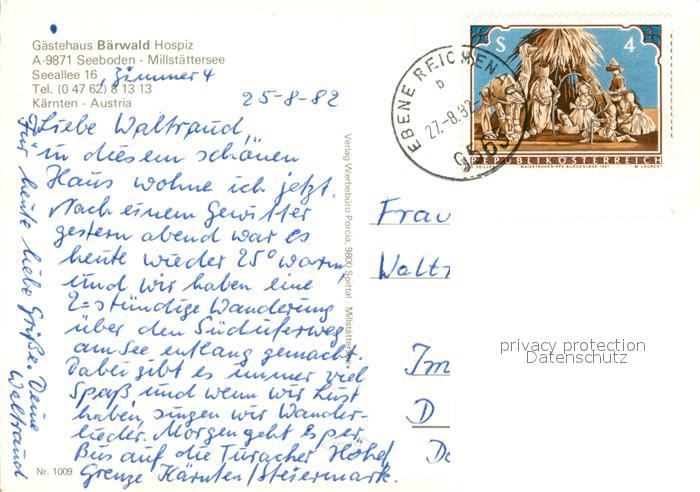 Gästehaus Bärwald Hospiz
A-9871 Seeboden - Millstättersee
Seeallee 16, Zimmer 4
Tel. (0 47 62) 8 13 13
Kärnten - Austria
25-8-82
Liebe Waltraud,
in diesem schönen
Haus wohne ich jetzt.
Nach einem Gewitter
gestern abend war es
heute wieder 25° warm
und wir haben eine
2-stündige Wanderung
über den Süduferweg
am See entlang gemacht.
Dabei gibt es immer viel
Spaß und wenn wir Lust
haben, singen wir Wander-
lieder. Morgen geht es per
Bus auf die Turacher Höhe,
Grenze Kärnten/Steiermark.
Für heute liebe Grüße. Deine
Waltraud
Nr. 1009
Verlag Werbebüro Porcia, 9800 Spittal - Millstättersee
EBENE REICHENAU
b
27.-8.82-1
9565
S 4
REPUBLIK ÖSTERREICH
Frau
Waltr
Im
D
De
privacy protection
Datenschutz